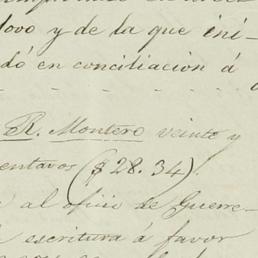 lovo y de la que ini-
dó en conciliación á
R. Montero veinte y
entavos ($28.34).
al oficio de Guerre-
escritura á favor